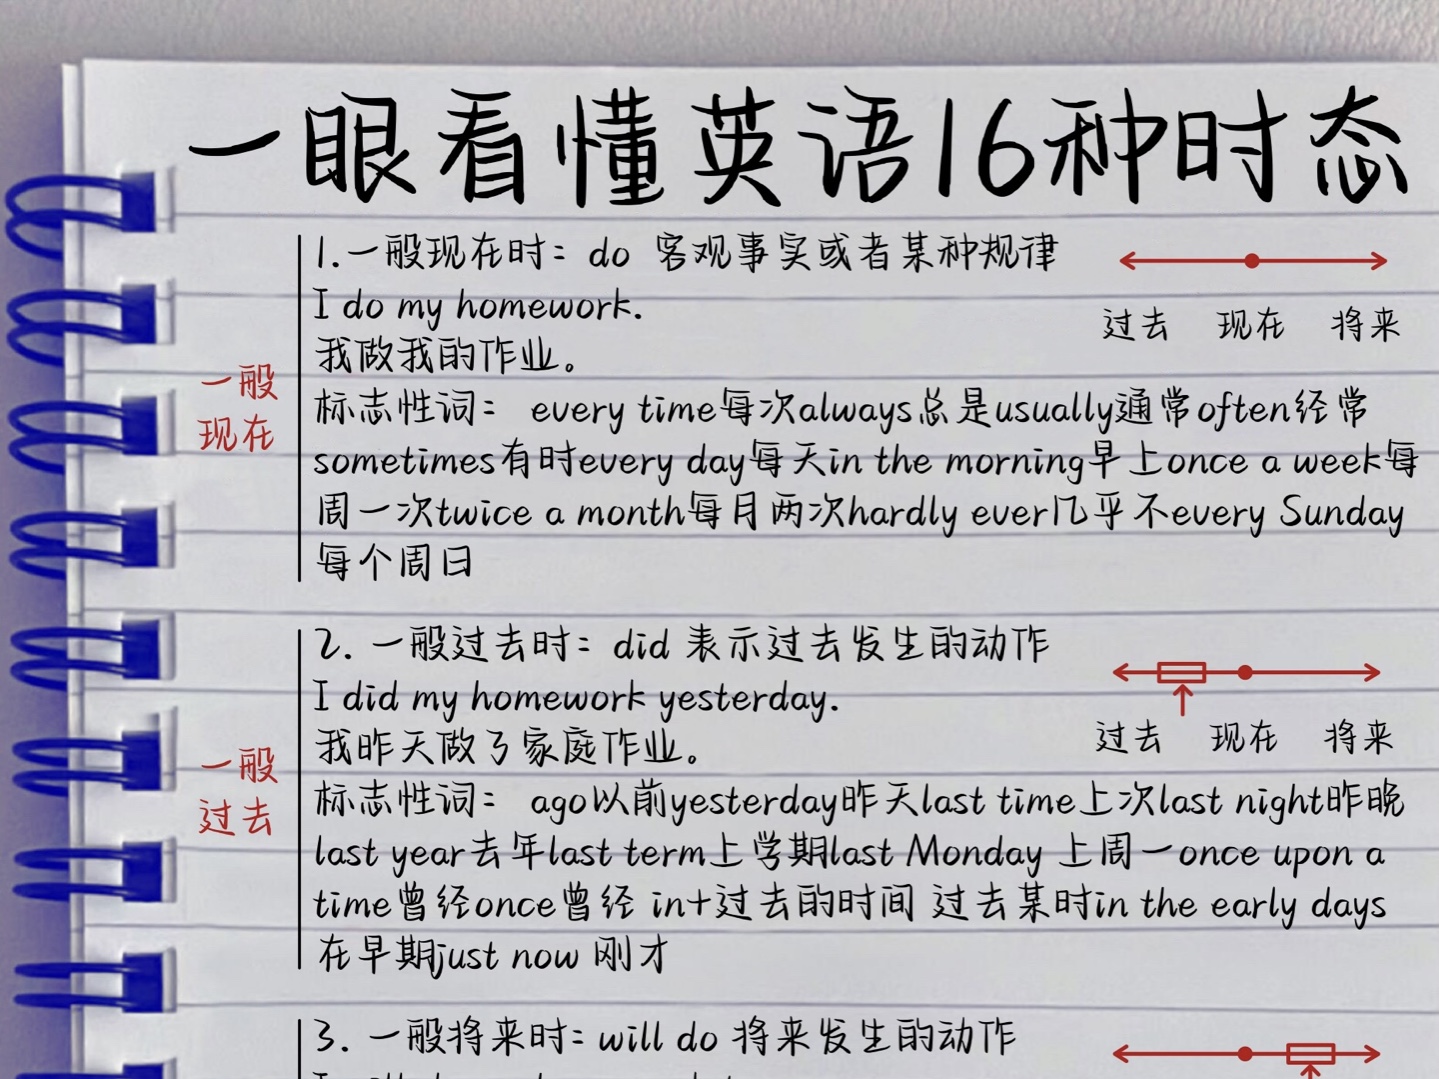 一眼看懂英语16种时态
1.一般现在时：do 客观事实或者某种规律
I do my homework.
过去 现在 将来
我做我的作业。
一般
现在
标志性词： every time每次always总是usually通常often经常
sometimes有时every day每天in the morning早上once a week每
周一次twice a month每月两次hardly ever几乎不every Sunday
每个周日
2. 一般过去时：did 表示过去发生的动作
I did my homework yesterday.
过去 现在 将来
我昨天做了家庭作业。
一般
过去
标志性词： ago以前yesterday昨天last time上次last night昨晚
last year去年last term上学期last Monday 上周一once upon a
time曾经once曾经 in+过去的时间 过去某时in the early days
在早期just now 刚才
3. 一般将来时：will do 将来发生的动作